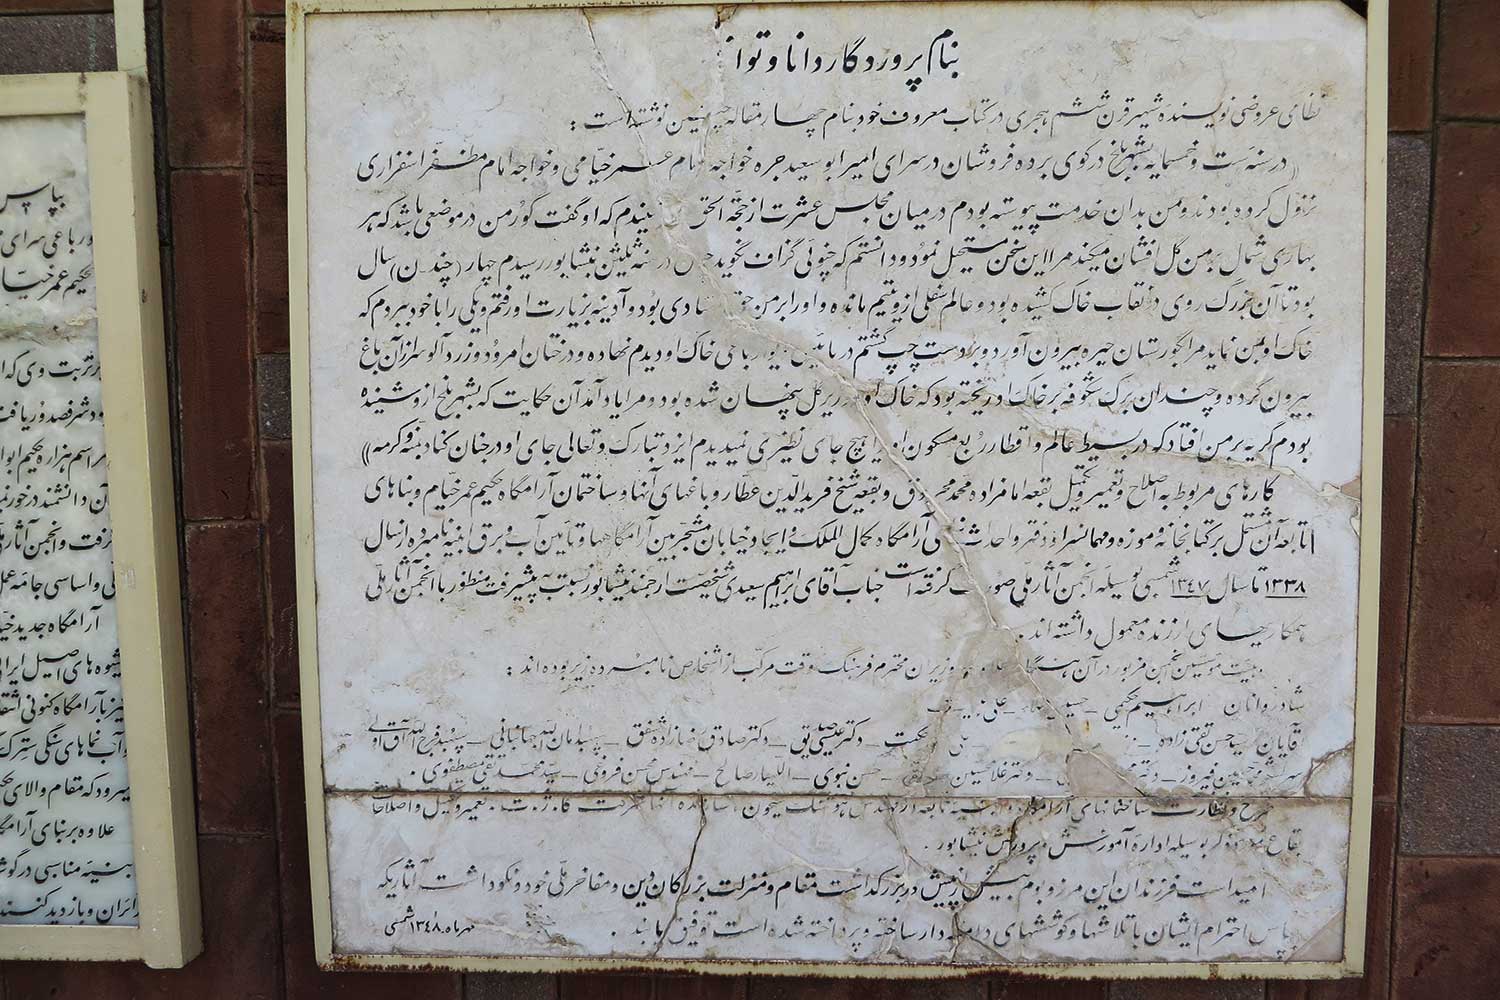 بنام پروردگار دانا و توا
نظامی عروضی نویسنده شهیر قرن ششم هجری در کتاب معروف خود بنام چهار مقاله چنین نوشته است :
(( در سنه ست و خمسمایه بشهر بلخ در کوی برده فروشان در سرای امیر ابو سعید جره خواجه امام عمر خیامی و خواجه امام مظفر اسفزاری
نزول کرده بودند و من بدان خدمت پیوسته بودم در میان مجلس عشرت از حجّة الحق شنیدم که او گفت گور من در موضعی باشد که هر
بهاری شمال بر من گل افشان میکند مرا این سخن مستحیل نمود و دانستم که چوئی گزاف نگوید چون در سنه ثلثین بنشابور رسیدم چهار (چند-ن) سال
بود تا آن بزرگ روی در نقاب خاک کشیده بود و عالم سفلی از و یتیم مانده و او را بر من حق استادی بود آدینه بزیارت او رفتم و یکی را با خود ببردم که
خاک او بمن نماید مرا بگورستان حیره بیرون آورد و بر دست چپ گشتم در پائین دیوار باغی خاک او دیدم نهاده و درختان امرود و زردآلو سر از آن باغ
بیرون کرده و چندان برگ شکوفه بر خاک او ریخته بود که خاک او در زیر گل پنهان شده بود و مرا یاد آمد آن حکایت که بشهر بلخ از و شنیده
بودم گریه بر من افتاد که در بسیط عالم و اقطار ربع مسکون او را هیچ جای نظیری نمیدیدم ایزد تبارک و تعالی جای او در جنان کناد بمنه و کرمه ))
کارهای مربوط به اصلاح و تعمیر و تکمیل بقعه امامزاده محمد محروق و بقعه شیخ فریدالدّین عطار و باغهای آنها و ساختمان آرامگاه حکیم عمر خیام و بناهای
تابعه آن مشتمل بر کتابخانه و موزه و مهمانسرا و دفتر و احداث آرامگاه کمال الملک و ایجاد خیابان مشجر بین آرامگاهها و تأمین آب و برق ابنیه نامبرده از سال
۱۳۳۸ تا سال ۱۳۴۷ شمسی بوسیله انجمن آثار ملّی صورت گرفته است جناب آقای ابراهیم سعیدی شخصیت ارجمند نیشابور نسبت به پیشرفت منظور با انجمن آثار ملّی
همکاریهای ارزنده معمول داشته اند .
هیئت مؤسسین انجمن مزبور در آن هنگام علاوه وزیران محترم فرهنگ وقت مرکب از اشخاص نامبرده زیر بوده اند :
شادروانان ابراهیم حکیمی _ حسین علاء _ علی
آقایان سید حسن تقی زاده _ علی حکمت _ دکتر عیسی صدیق _ دکتر صادق رضازاده شفق _ سپهبد امان الله جهانبانی _ سپهبد فرج الله آق اولی
سرلشکر محمد حسین فیروز _ دکتر _ دکتر غلامحسین _ حسن نبوی _ اللهیار صالح _ مهندس محسن فروغی _ سید محمد تقی مصطفوی .
طرح و نظارت ساختمانهای آرامگاه و ابنیه تابعه از مهندس هوشنگ سیحون سازنده آنها شرکت کا.ژ.ت. تعمیر و تکمیل و اصلاحات
بقاع مذکور بوسیله اداره آموزش و پرورش نیشابور .
امید است فرزندان این مرز و بوم بیش از پیش در بزرگداشت مقام و منزلت بزرگان دین و مفاخر ملّی خود و نگهداشت آثاریکه
بپاس احترام ایشان با تلاشها و کوششهای دامنه دار ساخته و پرداخته شده است توفیق یابند .
مهرماه ۱۳۴۸ شمسی
بپاس
و رباعی سرای
حکیم عمر خیّا
بر تربت وی که ا
آرامگاه جدید خیا
شیوه های اصیل ایرا
نیز با آرامگاه کنونی
و آب نماهای سنگی
میرود که مقام والای حکی
علاوه بر بنای آرامگا
ابنیه مناسبی در گوش
ایران و بازدید کنند